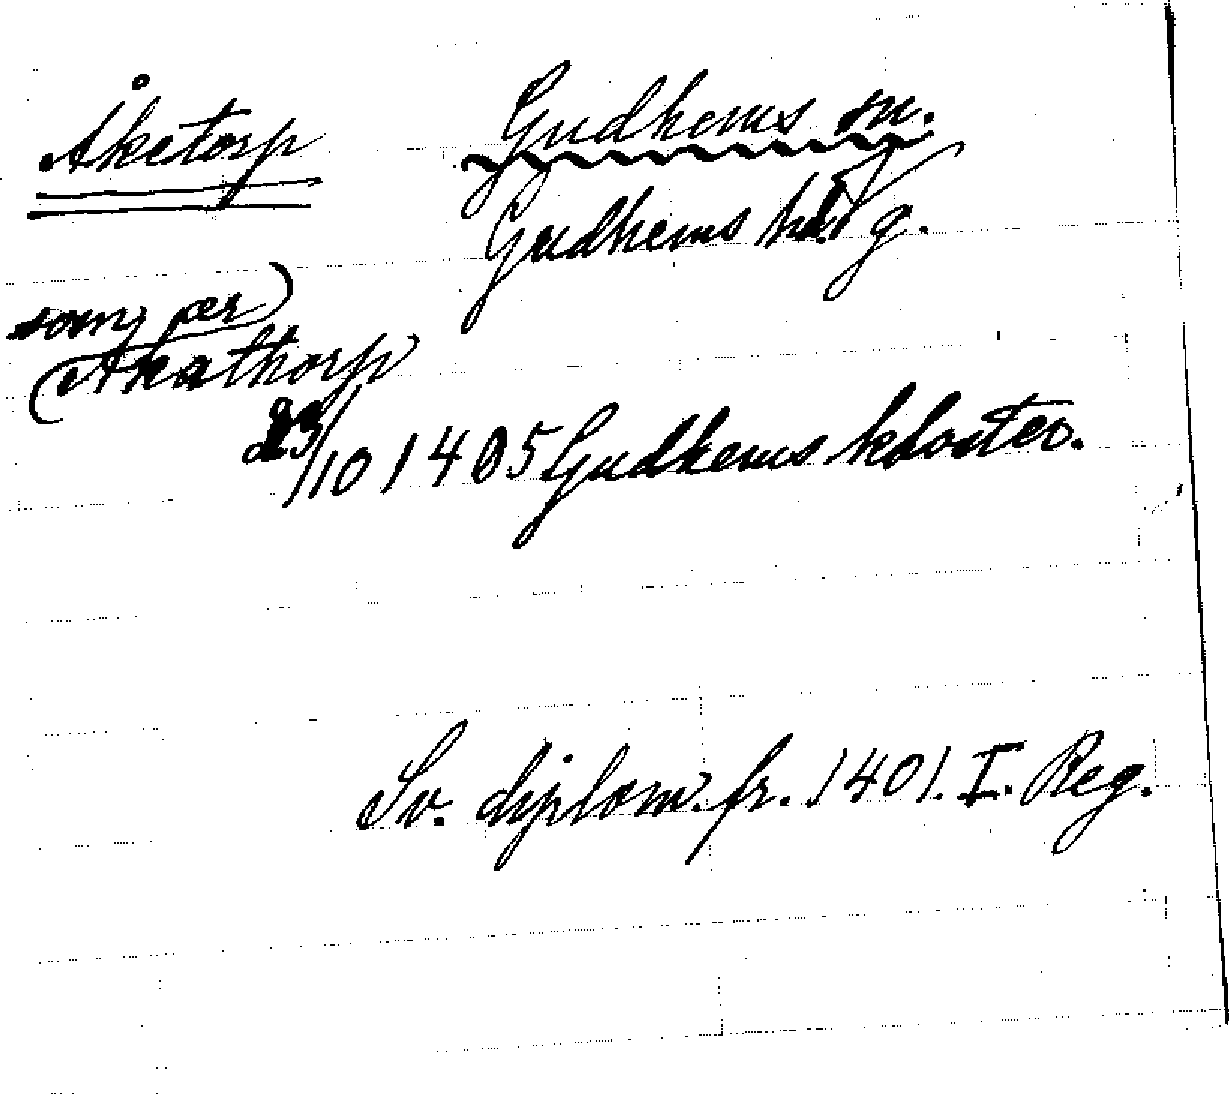 Åketorp
Gudhems sn.
Gudhems hd Vg.
som er
(Akathorp)
23/10 1405 Gudhems kloster.
Sv. diplom. fr. 1401. I. Reg.